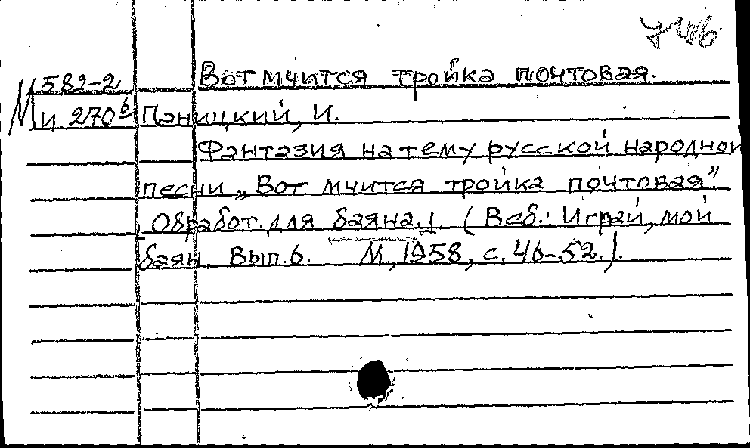 Вот мчится тройка почтовая.
М 582-2
и 270б Паницкий, И.
Фантазия на тему русской народной
песни „Вот мчится тройка почтовая"
Обработ. для баяна. (В сб.: Играй, мой
баян. Вып. 6. М., 1958, с. 46-52.).